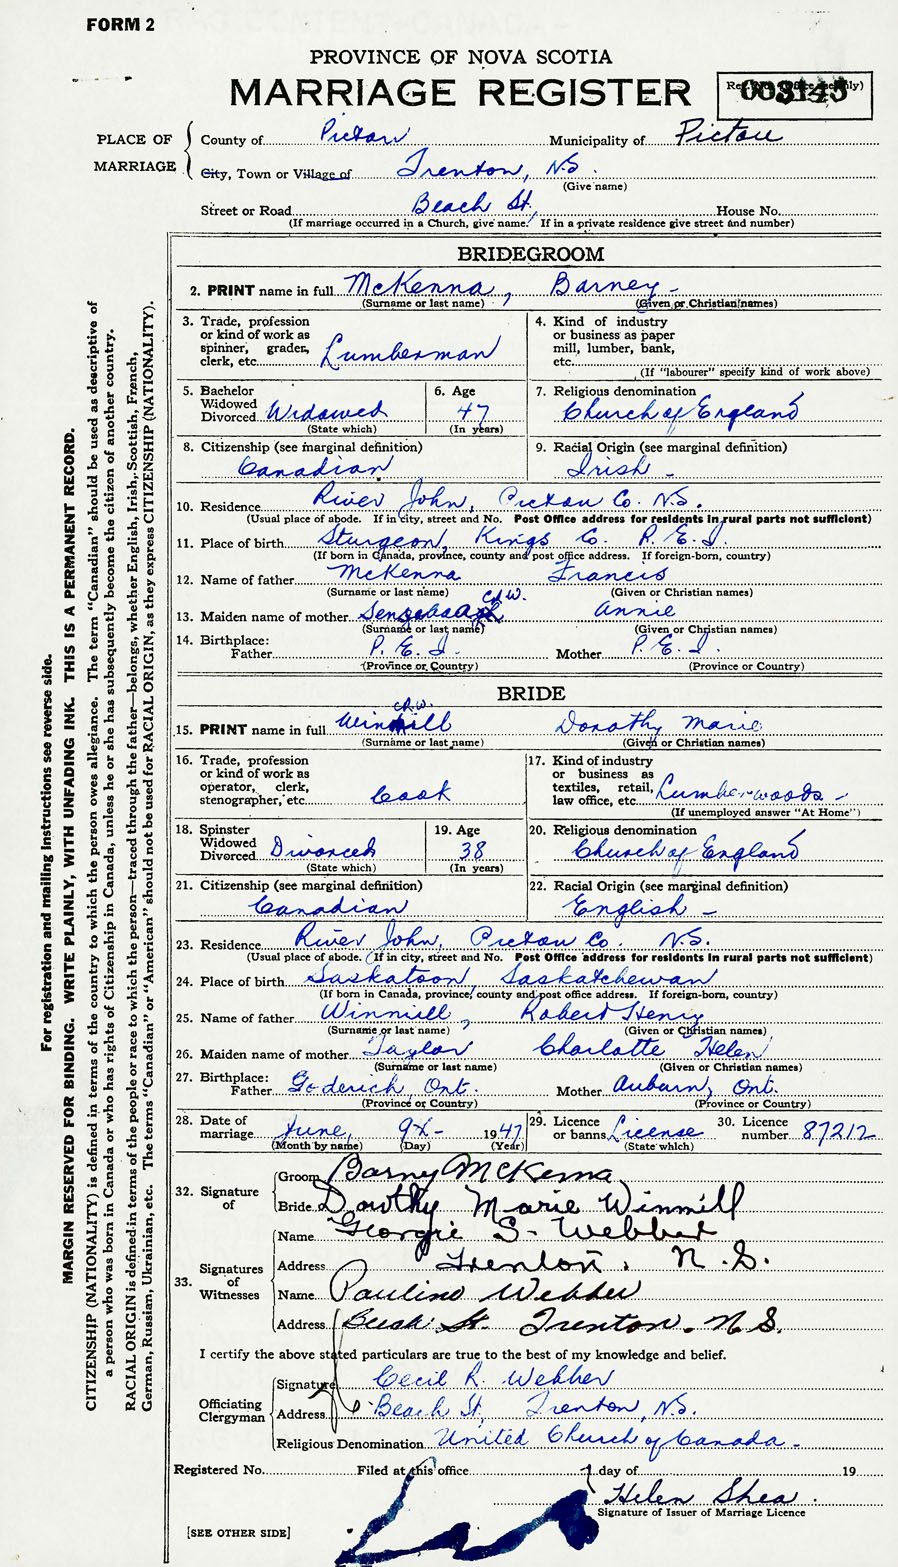 FORM 2
PROVINCE OF NOVA SCOTIA
MARRIAGE REGISTER
003145
PLACE OF MARRIAGE
County of Pictou Municipality of Pictou
City, Town or Village of Trenton, N.S.
(Give name)
Street or Road Beach St. House No.
(If marriage occurred in a Church, give name. If in a private residence give street and number)
BRIDEGROOM
2. PRINT name in full McKenna, Barney -
(Surname or last name) (Given or Christian names)
3. Trade, profession or kind of work as spinner, grader, clerk, etc. Lumberman
4. Kind of industry or business as paper mill, lumber, bank, etc.
(If "labourer" specify kind of work above)
5. Bachelor Widowed Divorced Widowed
(State which)
6. Age 47
(In years)
7. Religious denomination
Church of England
8. Citizenship (see marginal definition)
Canadian
9. Racial Origin (see marginal definition)
Irish -
10. Residence River John, Pictou Co. N.S.
(Usual place of abode. If in city, street and No. Post Office address for residents in rural parts not sufficient)
11. Place of birth Sturgeon, Kings Co. P.E.I.
(If born in Canada, province, county and post office address. If foreign-born, country)
12. Name of father McKenna Francis
(Surname or last name) (Given or Christian names)
C.R.W.
13. Maiden name of mother Annie
(Surname or last name) (Given or Christian names)
14. Birthplace:
Father P.E.I. Mother P.E.I.
(Province or Country) (Province or Country)
BRIDE
C.R.W.
15. PRINT name in full Winmill Dorothy Marie
(Surname or last name) (Given or Christian names)
16. Trade, profession or kind of work as operator, clerk, stenographer, etc. Cook
17. Kind of industry or business as textiles, retail, law office, etc. Lumberwoods -
(If unemployed answer "At Home")
18. Spinster Widowed Divorced Divorced
(State which)
19. Age 38
(In years)
20. Religious denomination
Church of England
21. Citizenship (see marginal definition)
Canadian
22. Racial Origin (see marginal definition)
English -
23. Residence River John, Pictou Co. N.S.
(Usual place of abode. If in city, street and No. Post Office address for residents in rural parts not sufficient)
24. Place of birth Saskatoon, Saskatchewan
(If born in Canada, province, county and post office address. If foreign-born, country)
25. Name of father Winmill, Robert Henry
(Surname or last name) (Given or Christian names)
26. Maiden name of mother Taylor Charlotte Helen
(Surname or last name) (Given or Christian names)
27. Birthplace:
Father Goderich Ont. Mother Auburn, Ont.
(Province or Country) (Province or Country)
28. Date of marriage June, 9th- 1947
(Month by name) (Day) (Year)
29. Licence or banns License
(State which)
30. Licence number 87212
32. Signature of
Groom Barny McKenna
Bride Dorothy Marie Winmill
33. Signatures of Witnesses
Name Georgie S. Webber
Address Trenton. N.S.
Name Pauline Webber
Address Beach St. Trenton. N.S.
I certify the above stated particulars are true to the best of my knowledge and belief.
Officiating Clergyman
Signature Cecil R. Webber
Address Beach St, Trenton, N.S.
Religious Denomination United Church of Canada -
Registered No. Filed at this office day of 19
Helen Shea.
Signature of Issuer of Marriage Licence
[SEE OTHER SIDE]
For registration and mailing instructions see reverse side.
MARGIN RESERVED FOR BINDING. WRITE PLAINLY, WITH UNFADING INK. THIS IS A PERMANENT RECORD.
CITIZENSHIP (NATIONALITY) is defined in terms of the country to which the person owes allegiance. The term "Canadian" should be used as descriptive of
a person who was born in Canada or who has rights of Citizenship in Canada, unless he or she has subsequently become the citizen of another country.
RACIAL ORIGIN is defined in terms of the people or race to which the person—traced through the father—belongs, whether English, Irish, Scottish, French,
German, Russian, Ukrainian, etc. The terms "Canadian" or "American" should not be used for RACIAL ORIGIN, as they express CITIZENSHIP (NATIONALITY).